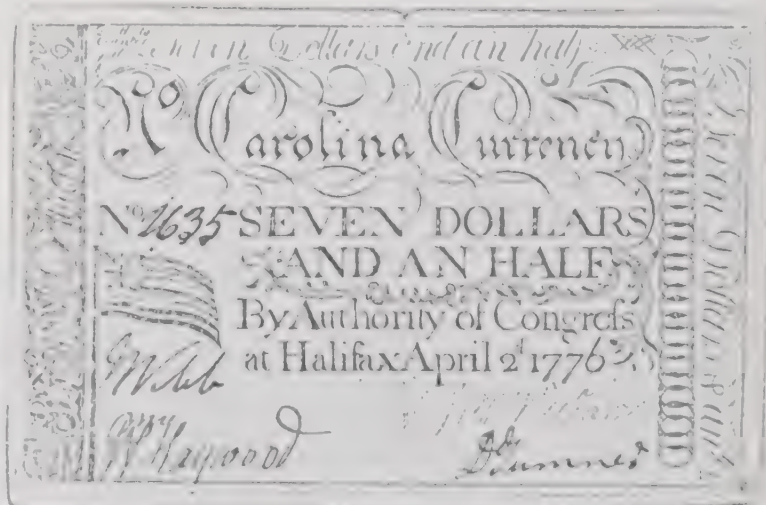 Seven Dollars and an half
No Carolina Currency
No 2635 SEVEN DOLLARS
AND AN HALF
By Authority of Congreſs
at Halifax April 2d 1776
Webb
Haywood
D Sumner
Seven Dollars